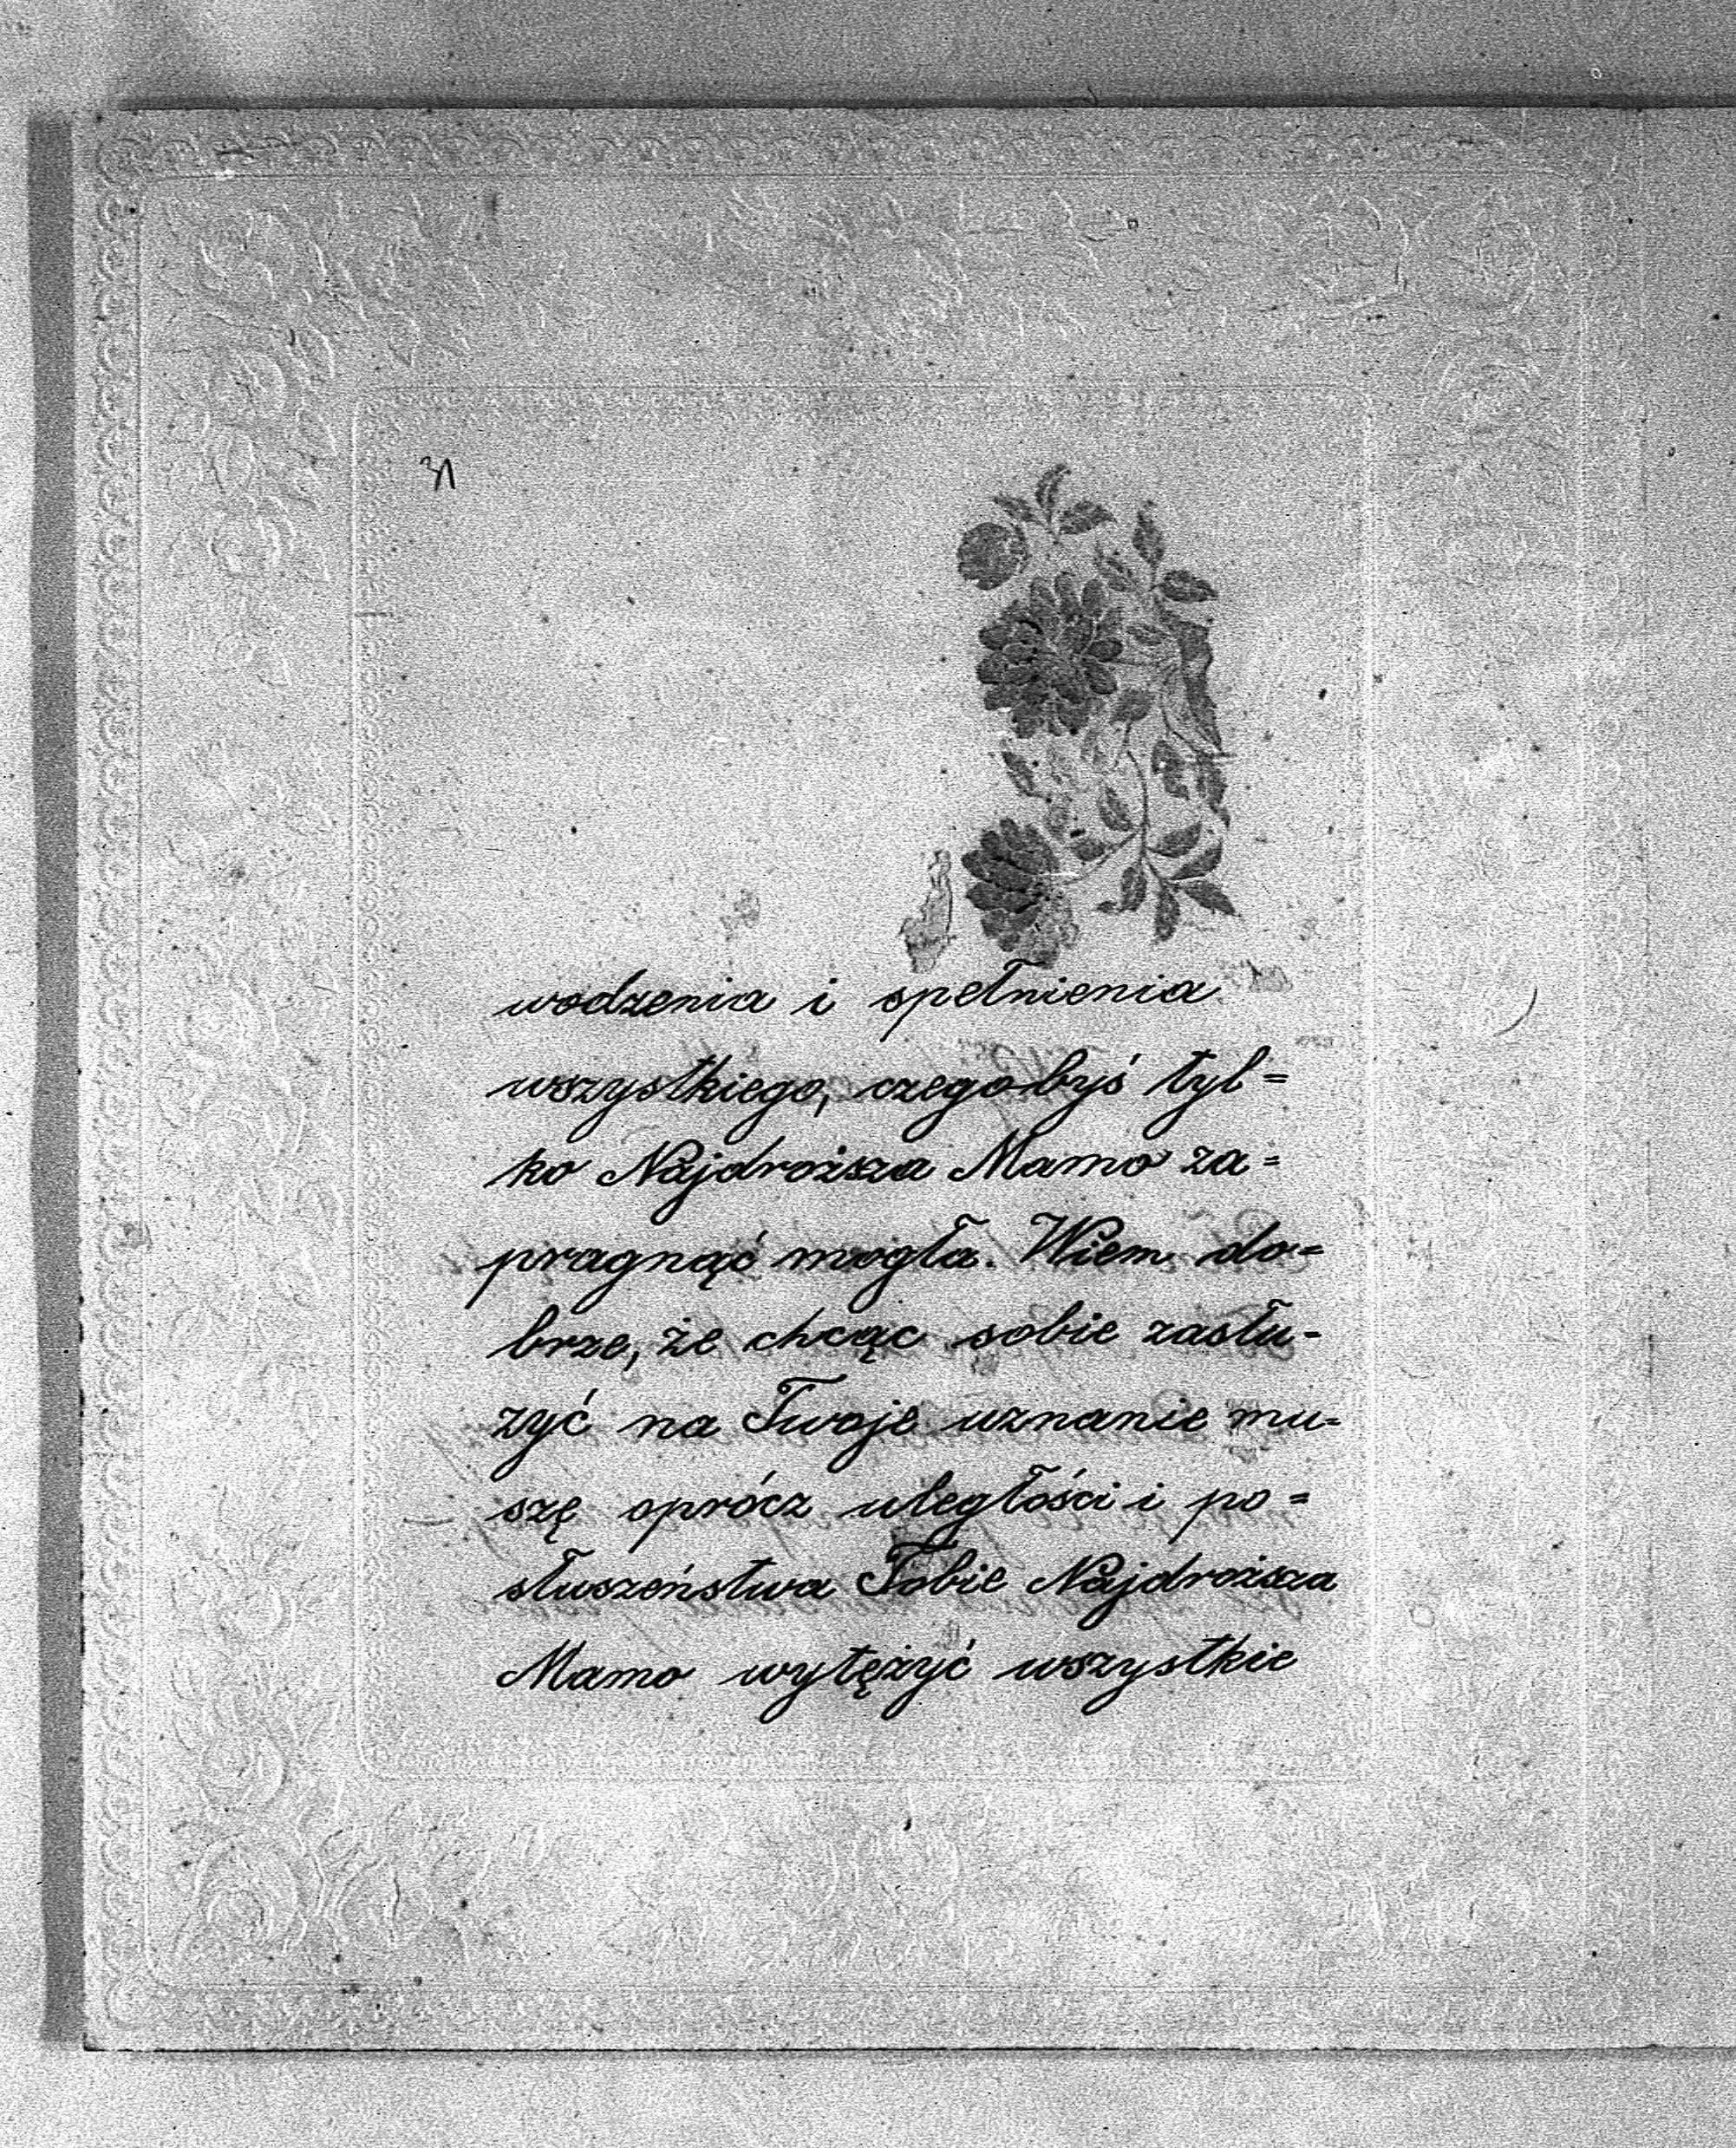 31
wodzenia i spełnienia
wszystkiego, czegobyś tyl=
ko Najdroższa Mamo za=
pragnąć mogła. Wiem do=
brze, że chcąc sobie zasłu-
żyć na Twoje uznanie mu=
szę oprócz uległości i po=
słuszeństwa Tobie Najdroższa
Mamo wytężyć wszystkie